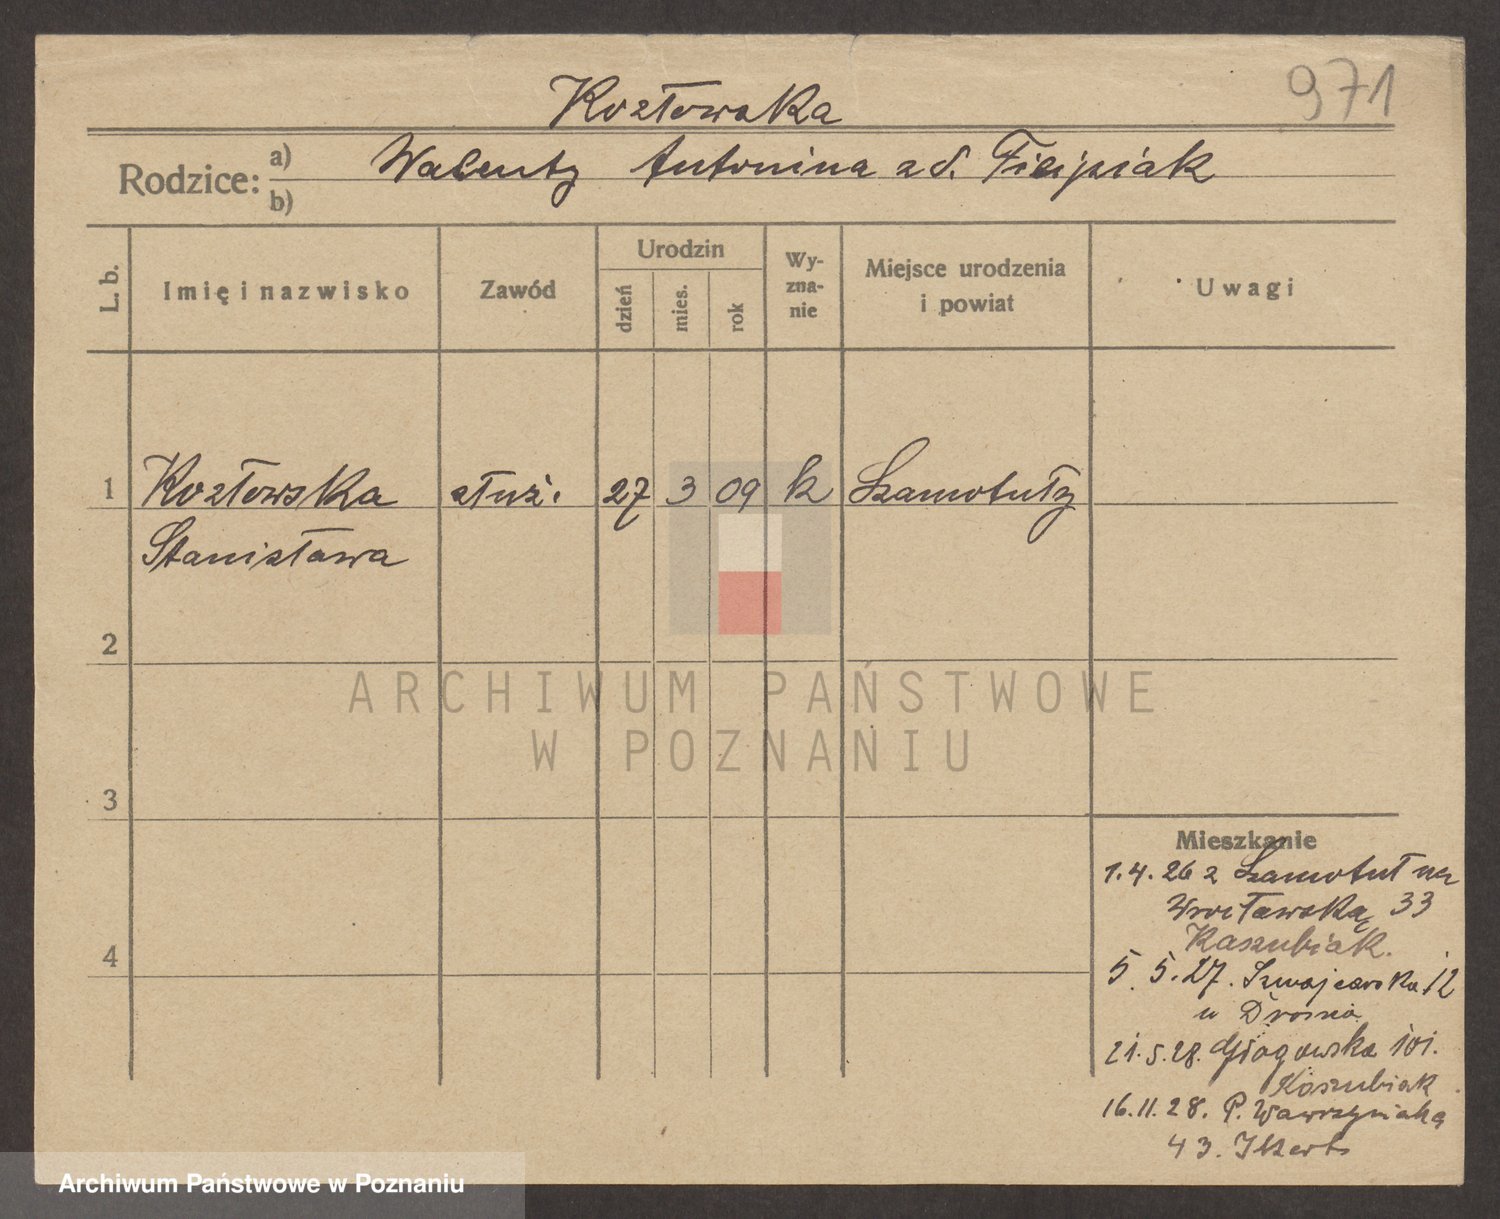 971
Kozłowska
Rodzice: a) Walenty Antonina zd. Filipiak
b)
L. b.
Imię i nazwisko
Zawód
Urodzin
dzień
mies.
rok
Wy-
zna-
nie
Miejsce urodzenia
i powiat
Uwagi
1 Kozłowska służ. 27 3 09 k Szamotuły
Stanisława
2
3
4
Mieszkanie
1.4.26 z Szamotuł na
Wrocławską 33
Kaszubiak.
5.5.27. Szwajcarska 12
u
21.5.28. Głogowska 101.
Kaszubiak
16.11.28. P. Wawrzyniaka
43.
ARCHIWUM PAŃSTWOWE
W POZNANIU
Archiwum Państwowe w Poznaniu